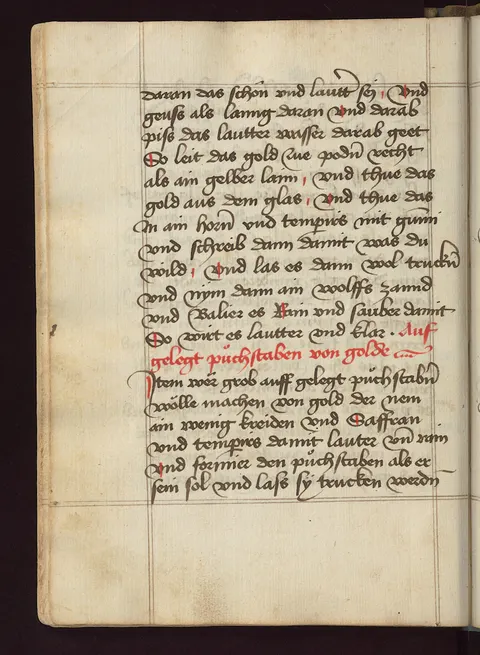 daran das schön vnd lautt̄ sej, Vnd
geuss als lanng daran Vnd darab
piss das lautter wasser darab geet
So leit das gold zue podn̄ recht
als ain gelber laim, vnd thue das
gold aus dem glas, Vnd thue das
In ain horn̄ vnd tempirs mit gumi
vnd schreib dann damit was du
wild, Vnd las es dann wol truckn̄
vnd nym dann ain wolffs zannd
vnd Balier es Rain vnd sauber damit
So wirt es lautter vnd klar. Auf
gelegt půchstaben von golde
Item wer grob auff gelegt půchstabn̄
wölle machen von gold der nem
ain wenig kreiden vnd Saffran
vnd tempirs damit lauter vn̄ rain
Vnd formier den půchstaben als er
sein sol vnd lass sy trucken werdn̄